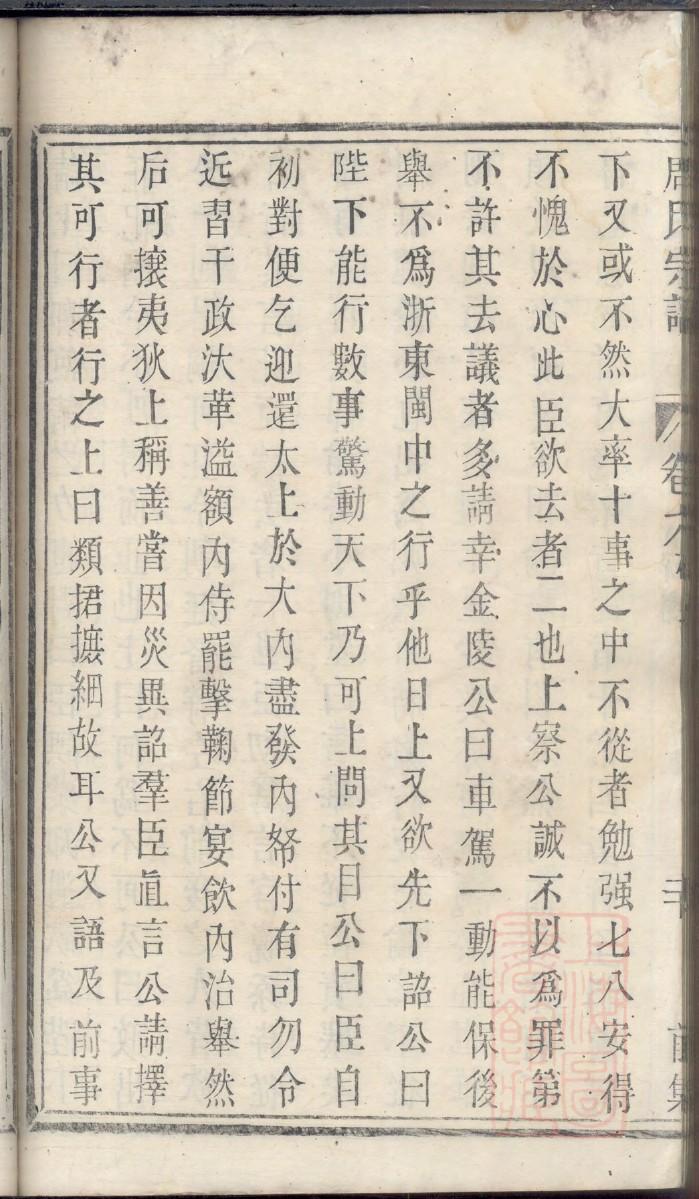 周氏宗譜 卷六 前集
下又或不然大率十事之中不從者勉强七八安得
不愧於心此臣欲去者二也上察公誠不以爲罪第
不許其去議者多請幸金陵公曰車駕一動能保後
舉不爲浙東閩中之行乎他日上又欲先下詔公曰
陛下能行數事驚動天下乃可上問其目公曰臣自
初對便乞迎還太上於大內盡發內帑付有司勿令
近習干政汰革溢額內侍罷擊鞠節宴飲內治舉然
后可攘夷狄上稱善嘗因災異詔羣臣直言公請擇
其可行者行之上曰類捃摭細故耳公又語及前事